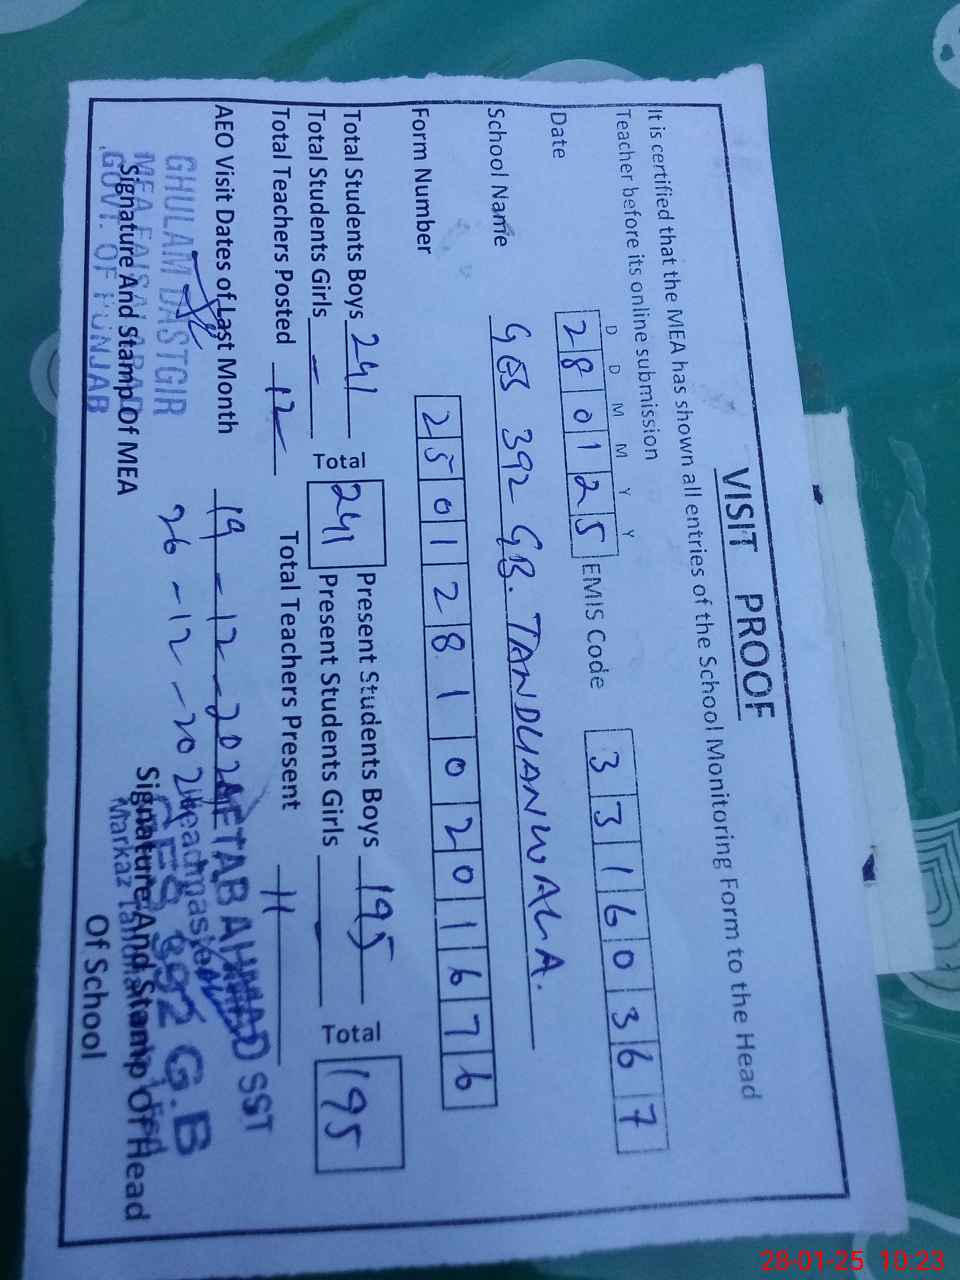 VISIT PROOF
It is certified that the MEA has shown all entries of the School Monitoring Form to the Head
Teacher before its online submission
D D M M Y Y
Date 280125 EMIS Code 33160367
School Name GES 392 GB. TANDLIANWALA.
Form Number 25012810201676
Total Students Boys 241 Total 241 Present Students Boys 195 Total 195
Total Students Girls - Present Students Girls -
Total Teachers Posted 12 Total Teachers Present 11
AEO Visit Dates of Last Month 19-12-2024
26-12-2024
GHULAM DASTGIR
MEA FAISALABAD
GOVT. OF PUNJAB
Signature And Stamp Of MEA
AFTAB AHMAD SST
Headmaster
GES 392 G.B
Markaz
Signature And Stamp Of Head
Of School
28-01-25 10:23